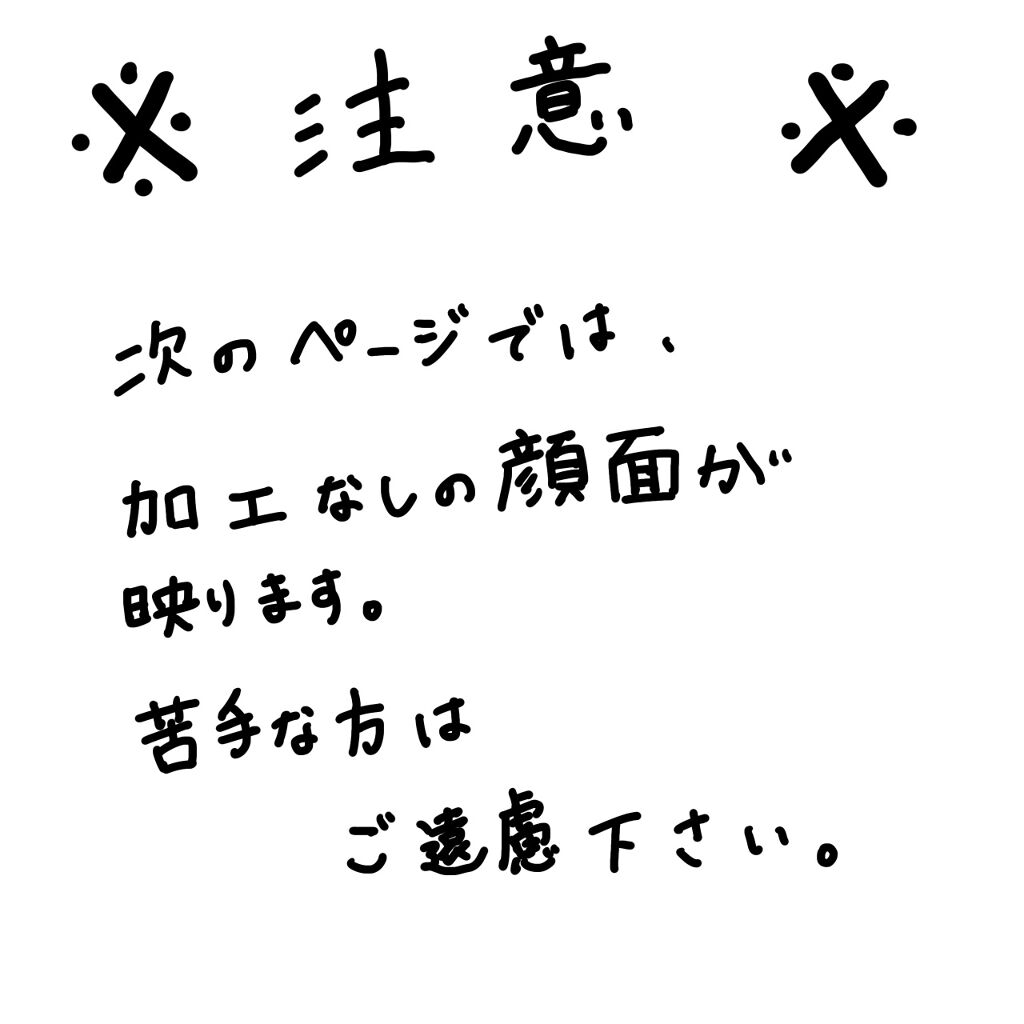 ※ 注意 ※
次のページでは、
加工なしの顔面が
映ります。
苦手な方は
ご遠慮下さい。